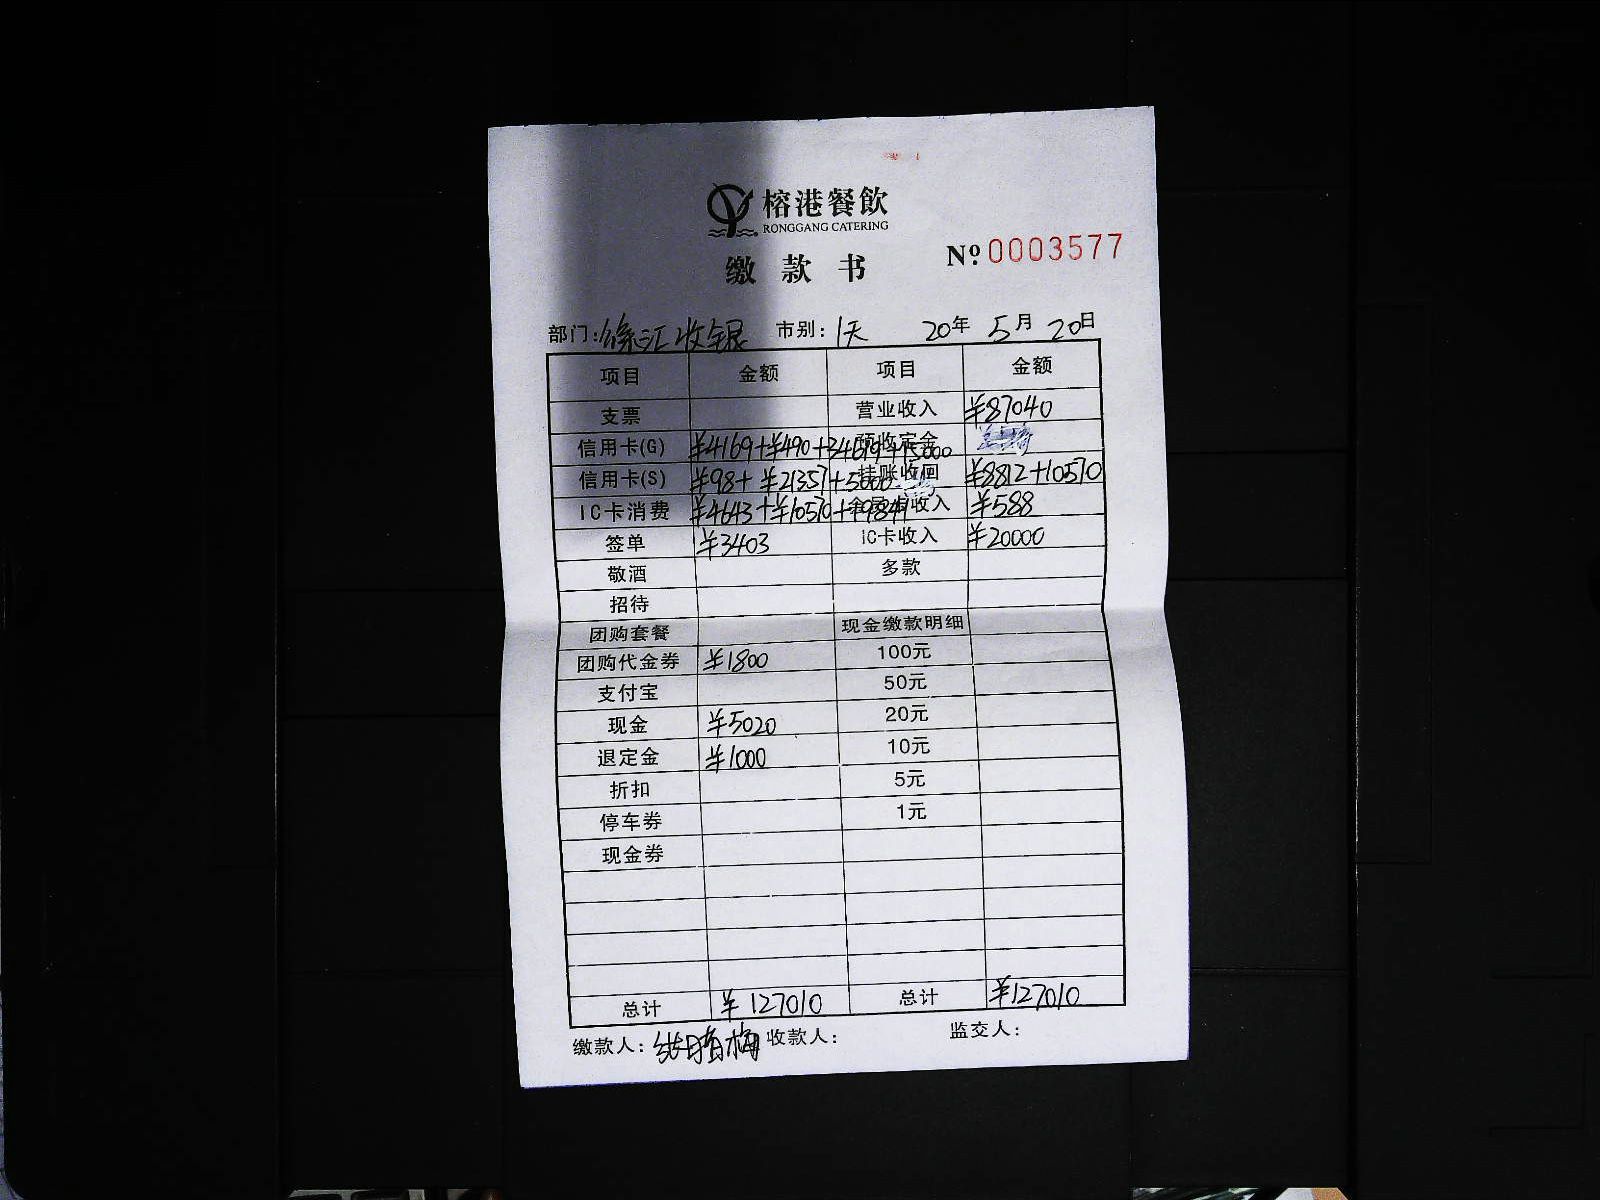 榕港餐飲
RONGGANG CATERING
缴款书
№ 0003577
部门: 徐汇收银 市别: 1天 20年 5月 20日
项目 金额 项目 金额
支票 营业收入 ¥87040
信用卡(G) ¥4169+¥490+34619+15000 预收定金
信用卡(S) ¥98+¥21357+5000 挂账收回 ¥8812+10570
IC卡消费 ¥4643+¥10570+19841 收入 ¥588
签单 ¥3403 IC卡收入 ¥20000
敬酒 多款
招待
团购套餐 现金缴款明细
团购代金券 ¥1800 100元
支付宝 50元
现金 ¥5020 20元
退定金 ¥1000 10元
折扣 5元
停车券 1元
现金券
总计 ¥127010 总计 ¥127010
缴款人: 收款人: 监交人: